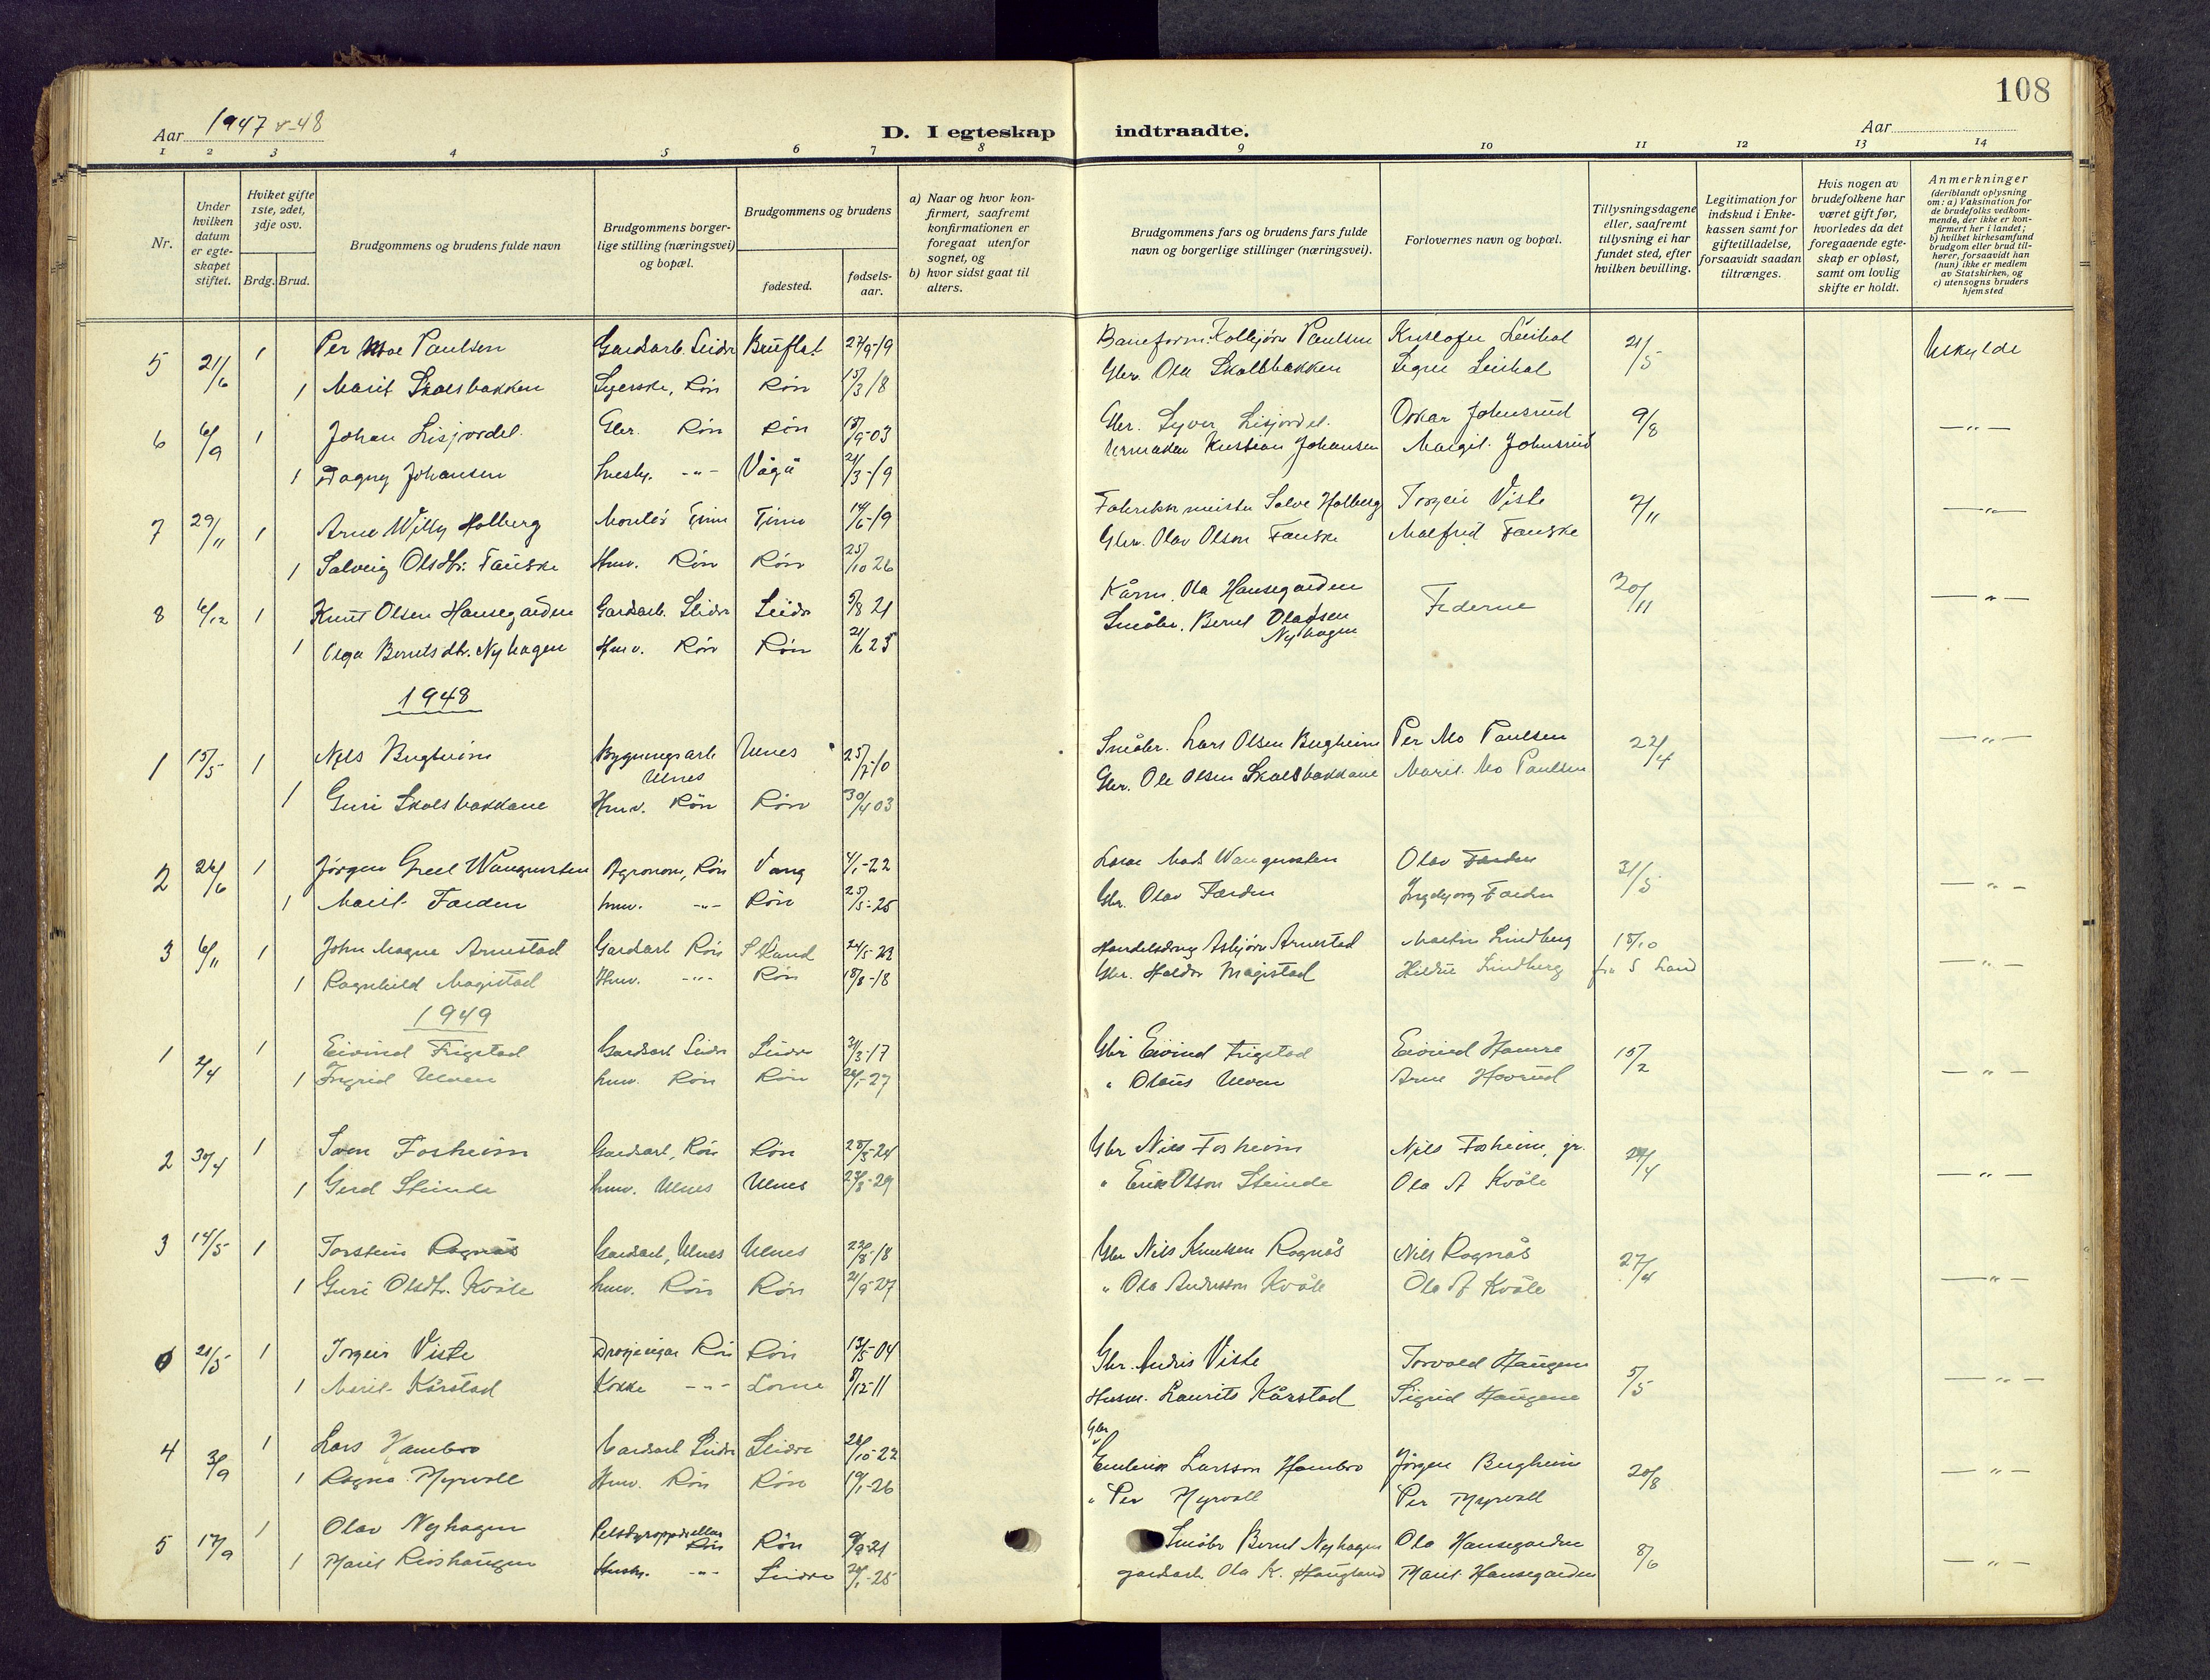 108
Aar 1947 & -48
D. I egteskap indtraadte.
Aar
1 2 3 4 5 6 7 8 9 10 11 12 13 14
Nr.
Under hvilken datum er egteskapet stiftet.
Hviket gifte 1ste, 2det, 3dje osv.
Brdg. Brud.
Brudgommens og brudens fulde navn
Brudgommens borgerlige stilling (næringsvei) og bopæl.
Brudgommens og brudens
fødested.
fødselsaar.
a) Naar og hvor konfirmert, saafremt konfirmationen er foregaat utenfor sognet, og
b) hvor sidst gaat til alters.
Brudgommens fars og brudens fars fulde navn og borgerlige stillinger (næringsvei).
Forlovernes navn og bopæl.
Tillysningsdagene eller, saafremt tillysning ei har fundet sted, efter hvilken bevilling.
Legitimation for indskud i Enkekassen samt for giftetilladelse, forsaavidt saadan tiltrænges.
Hvis nogen av brudefolkene har været gift før, hvorledes da det foregaaende egteskap er opløst, samt om lovlig skifte er holdt.
Anmerkninger
(deriblandt oplysning om: a) Vaksination for de brudefolks vedkommende, der ikke er konfirmert her i landet; b) hvilket kirkesamfund brudgom eller brud tilhører, forsaavidt han (hun) ikke er medlem av Statskirken, og c) utensogns bruders hjemsted
5 21/6 1 Per Moe Paulsen Gardsarb. Slidre Bruflat 27/9-19 Baneform. Kolbjørn Paulsen 21/5 Uskylde
1 Marit Skolsbakken Syerske, Røn Røn 15/3 18 Gbr. Ola Skolsbakken
6 6/9 1 Johan Lisjordet Gbr. Røn Røn 15/9-03 Gbr. Syver Lisjordet. Oskar Johnsrud 9/8 — " —
1 Dagny Johansen Husby. - " - Vågå 21/3-19 Urmaker Kristian Johansen Margit Johnsrud
7 29/11 1 Arne Willy Holberg Montør Tinn Tinn 14/6-19 Fabrikkmeister Salve Holberg Torgeir Viste 7/11 — " —
1 Solveig Olsdtr. Fauske Hmv. Røn Røn 25/10 26 Gbr. Olav Olson Fauske Malfrid Fauske
8 6/12 1 Knut Olsen Hansegarden Gardsarb. Slidre Slidre 5/8 21 Kårm. Ola Hansegarden Federne 30/11 — " —
1 Olga Berntsdtr. Nyhagen Hmv. Røn Røn 21/6 25 Småbr. Bernt Olavsen Nyhagen
1948
1 15/5 1 Nils Bugheim Bygningsarb. Ulnes Ulnes 25/7-10 Småbr. Lars Olsen Bugheim Per Mo Paulsen 22/4 — " —
1 Guri Skolsbakkane Hmv. Røn Røn 30/4 03 Gbr. Ole Olsen Skolsbakkane Marit Mo Paulsen
2 26/6 1 Jørgen Greel Wangensten Agronom, Røn Vang 4/1-22 Mads Wangensten Olav Færden 31/5 — " —
1 Marit Færden hmv. - " - Røn 25/5-25 Gbr. Olav Færden Ingebjørg Færden
3 6/11 1 John Magne Arnestad Gardsarb Røn S Land 24/5-22 Asbjørn Arnestad Martin Lindberg 15/10 — " —
1 Ragnhild Magistad Hmv. - " - Røn 18/8-18 Gbr. Haldor Magistad Lindberg fra S Land
1949
1 2/4 1 Eivind Frigstad Gardsarb Slidre Slidre 31/3-17 Gbr Eivind Frigstad Eivind Hamre 15/2 — " —
1 Ingrid Ulven hmv. Røn Røn 26/1-27 " Olaus Ulven Arne
2 30/4 1 Sven Fosheim Gardsarb, Røn Røn 25/5-24 Gbr Nils Fosheim Nils Fosheim, gr. 24/4 — " —
1 Gerd Steinde hmv. Ulnes Ulnes 23/8-29 " Erik Olson Steinde Ola A Kvåle
3 14/5 1 Torstein Rognås Gardsarb, Ulnes Ulnes 23/8-18 Gbr Nils Knutsen Rognås Nils Rognås 27/4 — " —
1 Guri Olsdtr. Kvåle hmv. Røn Røn 21/9-27 " Ola Andersson Kvåle Ola A Kvåle
21/5 1 Torgeir Viste Drosjeeigar Røn Røn 13/5-04 Gbr. Andris Viste Torvald Haugen 5/5 — " —
1 Marit Kårstad Kokke - " - Lome 8/12-11 Husm. Laurits Kårstad Sigrid Haugene
4 3/9 1 Lars Hambro Gardsarb Slidre Slidre 26/10-22 Gbr Embrik Larsson Hambro Jørgen Bugheim 20/8 — " —
1 Ragna Myrvoll Hmv. Røn Røn 19/1-26 " Per Myrvoll Per Myrvoll
5 17/9 1 Olav Nyhagen Pelsdyroppdretter Røn Røn 9/9-21 Småbr Bernt Nyhagen Ola Hansegarden 8/6 — " —
1 Marit Husby. - " - Slidre 24/1-25 gardsarb. Ola K. Haugland Marit Hansegarden